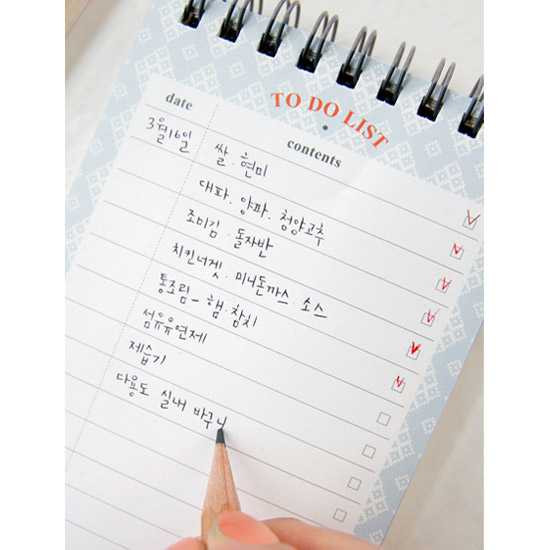 TO DO LIST
date contents
3월16일 쌀. 현미
대파. 양파. 청양고추
조미김. 돌자반
치킨너겟. 미니돈까스 소스
통조림_ 햄. 참치
섬유유연제
제습기
다용도 실내 바구니